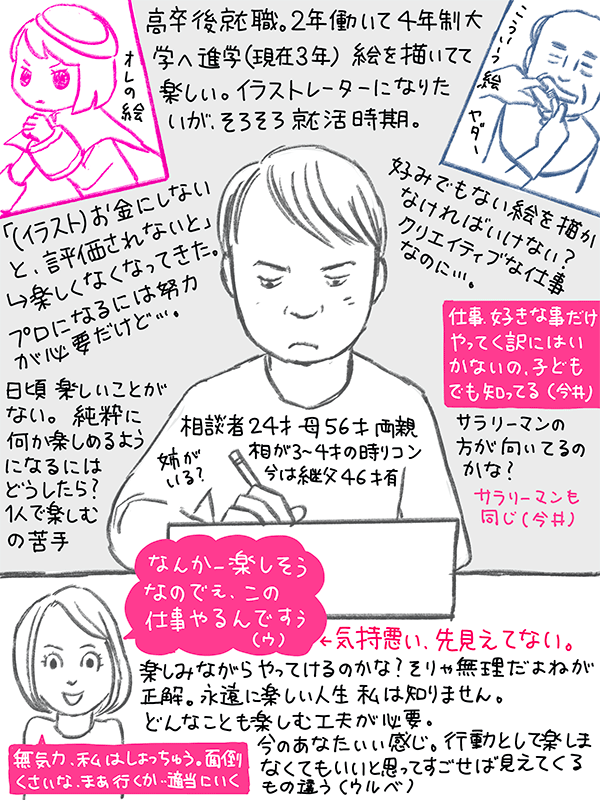 高卒後就職。2年働いて4年制大
学へ進学(現在3年) 絵を描いてて
楽しい。イラストレーターになりた
いが、そろそろ就活時期。
オレの絵
こういう絵
ヤダー
「(イラスト)お金にしない
と、評価されないと」
↳楽しくなくなってきた。
プロになるには努力
が必要だけど…。
好みでもない絵を描か
なければいけない?
クリエイティブな仕事
なのに…。
仕事、好きな事だけ
やってく訳にはい
かないの、子ども
でも知ってる(今井)
日頃楽しいことが
ない。純粋に
何か楽しめるよう
になるには
どうしたら?
1人で楽しむ
の苦手
相談者24才 母56才 両親
相が3~4才の時リコン
今は継父46才有
姉が
いる?
サラリーマンの
方が向いてるの
かな?
サラリーマンも
同じ(今井)
なんかー楽しそう
なのでぇ、この
仕事やるんですぅ
(ウ)
←気持悪い、先見えてない。
楽しみながらやってけるのかな?そりゃ無理だよねが
正解。永遠に楽しい人生 私は知りません。
どんなことも楽しむ工夫が必要。
今のあなたいい感じ。行動として楽しま
なくてもいいと思ってすごせば見えてくる
もの違う(ウルベ)
無気力、私はしょっちゅう。面倒
くさいな、まあ行くか…適当にいく